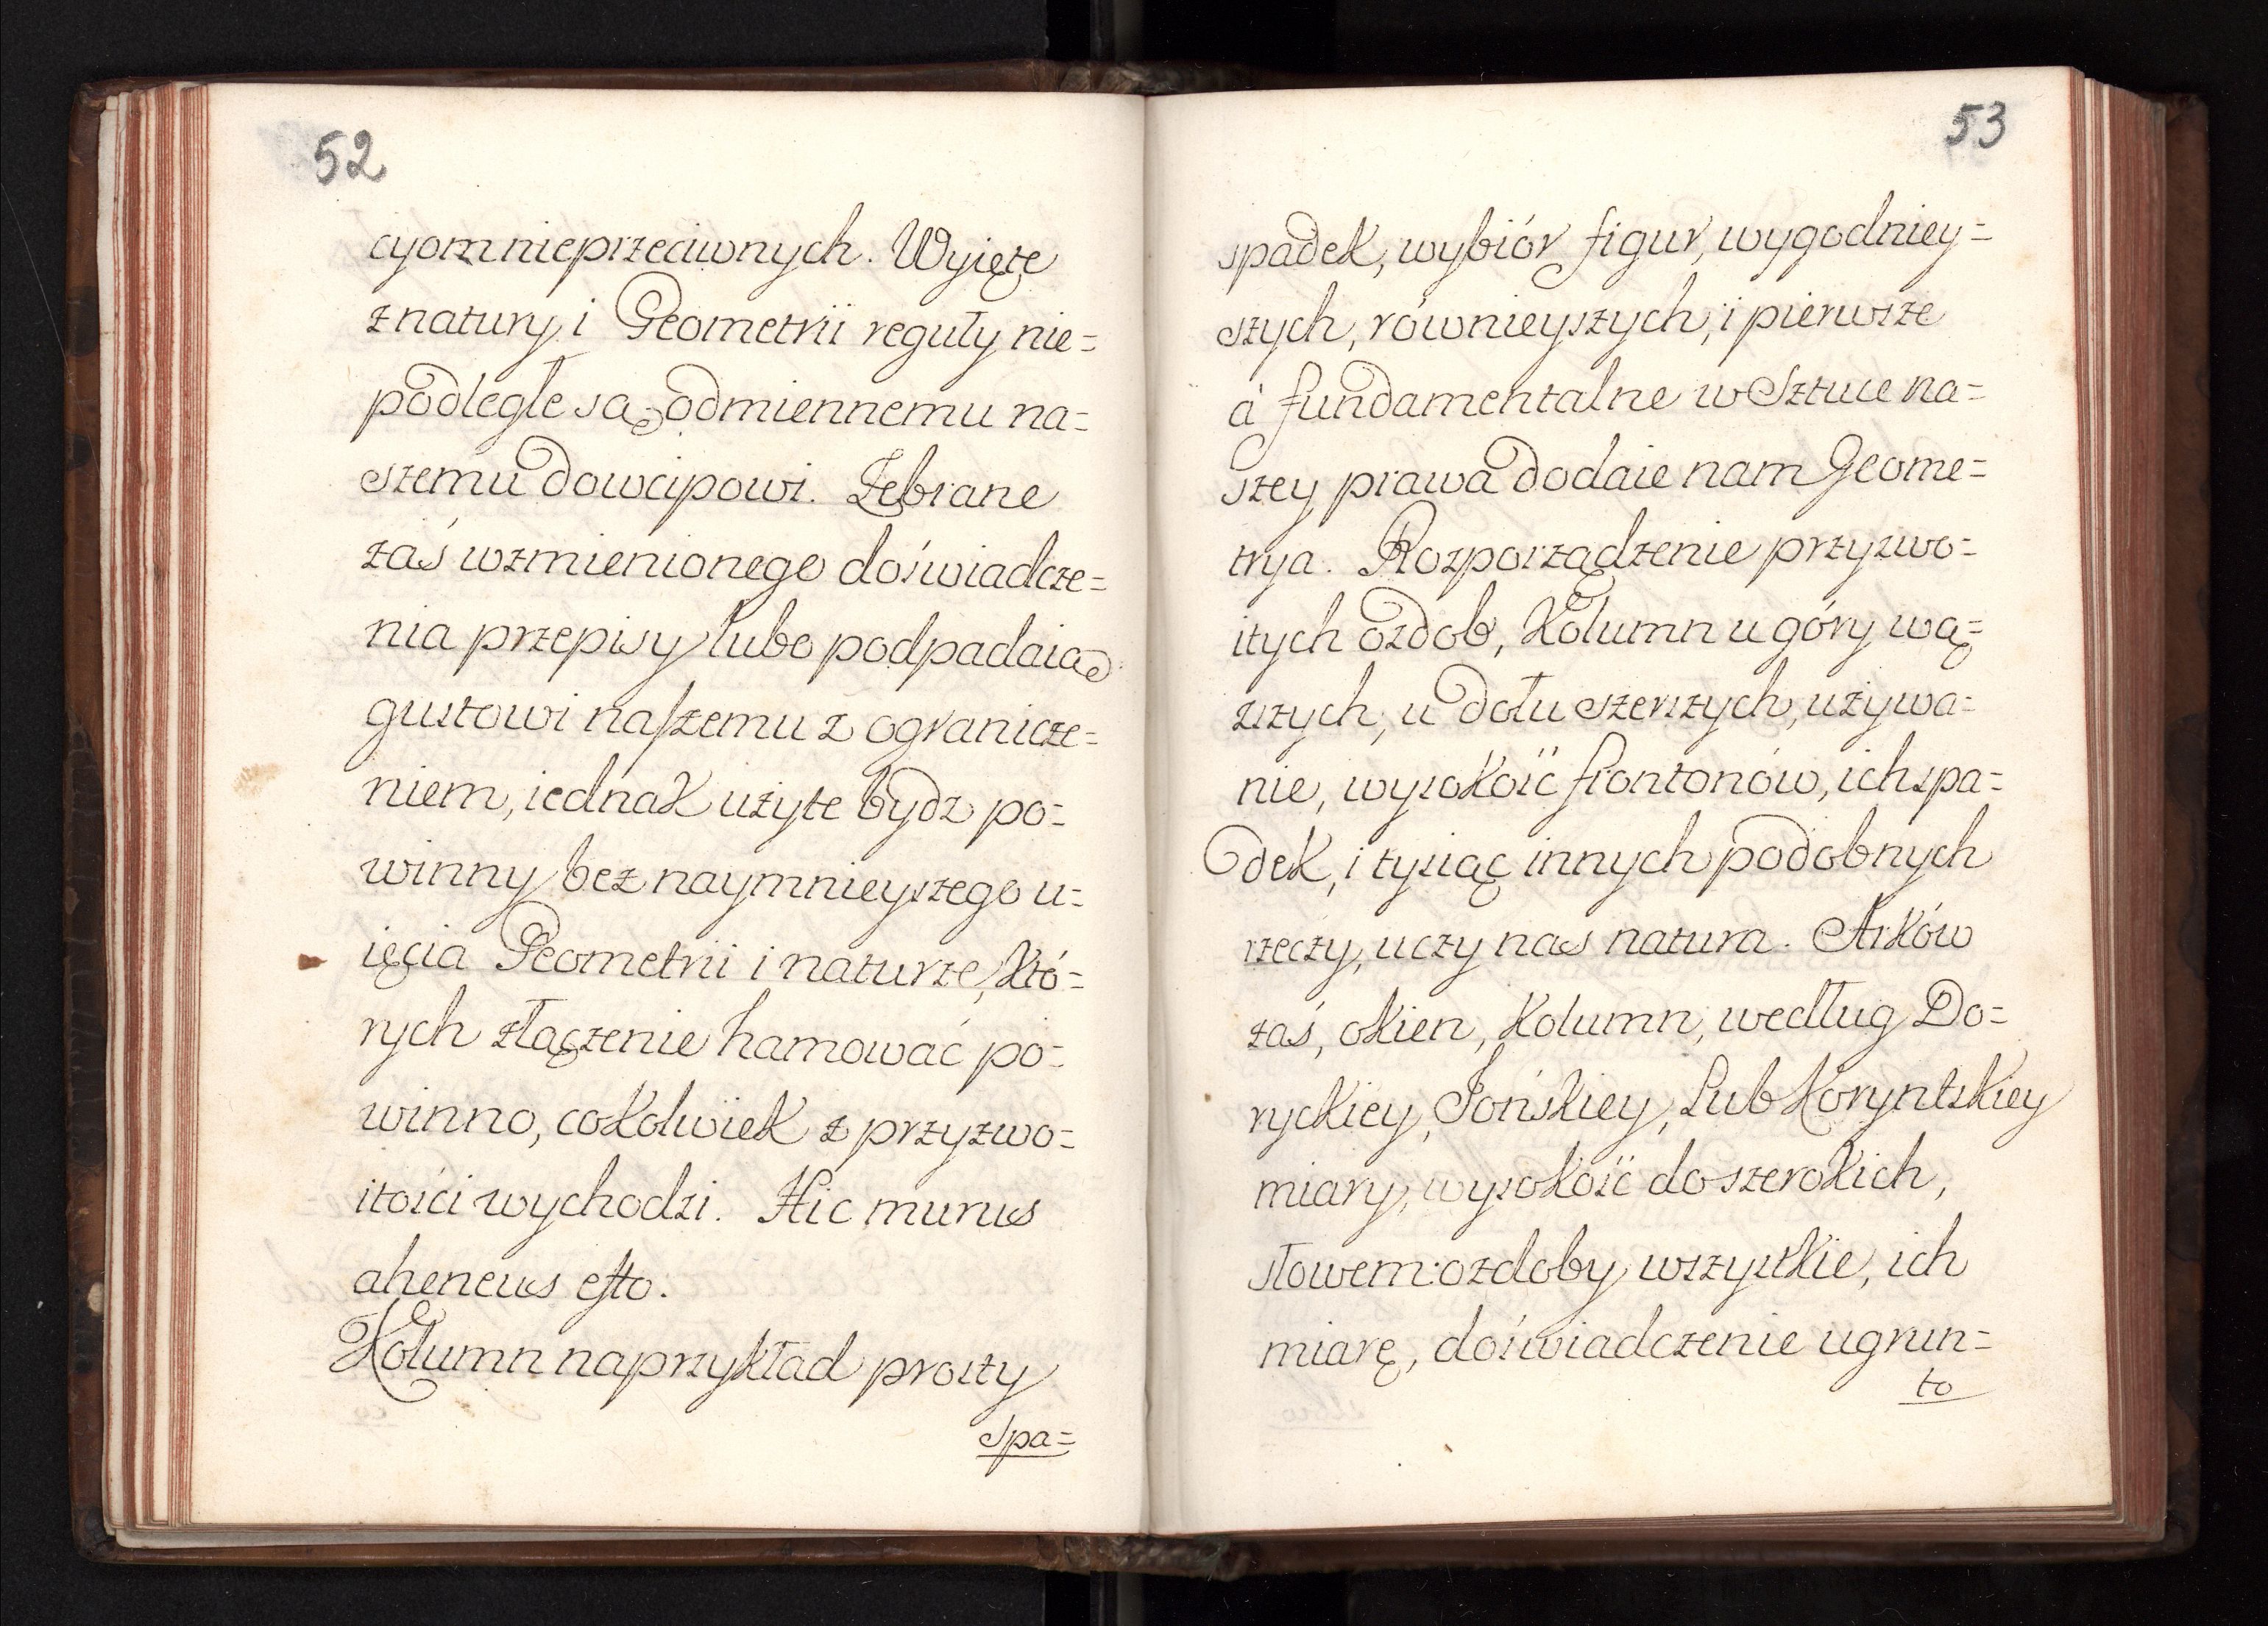 52
cyom nieprzeciwnych. Wyięte
z natury i Geometrii reguły nie=
podległe są odmiennemu na=
szemu dowcipowi. Zebrane
zaś wzmienionego doświadcze=
nia przepisy lubo podpadaią
gustowi naszemu z ogranicze=
niem, iednak użyte bydz po=
winny bez naymnieyszego u=
ięcia Geometrii i naturze, któ=
rych złączenie hamować po=
winno, cokolwiek z przyzwo=
itości wychodzi. Hic murus
aheneus esto.
Kolumn naprzykład prosty
spa=
53
spadek, wybiór figur, wygodniey=
szych, równieyszych, i pierwsze
a fundamentalne w Sztuce na=
szey prawa dodaie nam Geome=
trya. Rozporządzenie przyzwo=
itych ozdob, Kolumn u góry wą=
zszych, u dołu szerszych, używa=
nie, wysokość frontonów, ich spa=
dek, i tysiąc innych podobnych
rzeczy, uczy nas natura. Arków
zaś, okien, Kolumn, według Do=
ryckiey, Jońskiey, Lub Koryntskiey
miary, wysokość do szerokich,
słowem: ozdoby wszystkie, ich
miarę, doświadczenie ugrun=
to